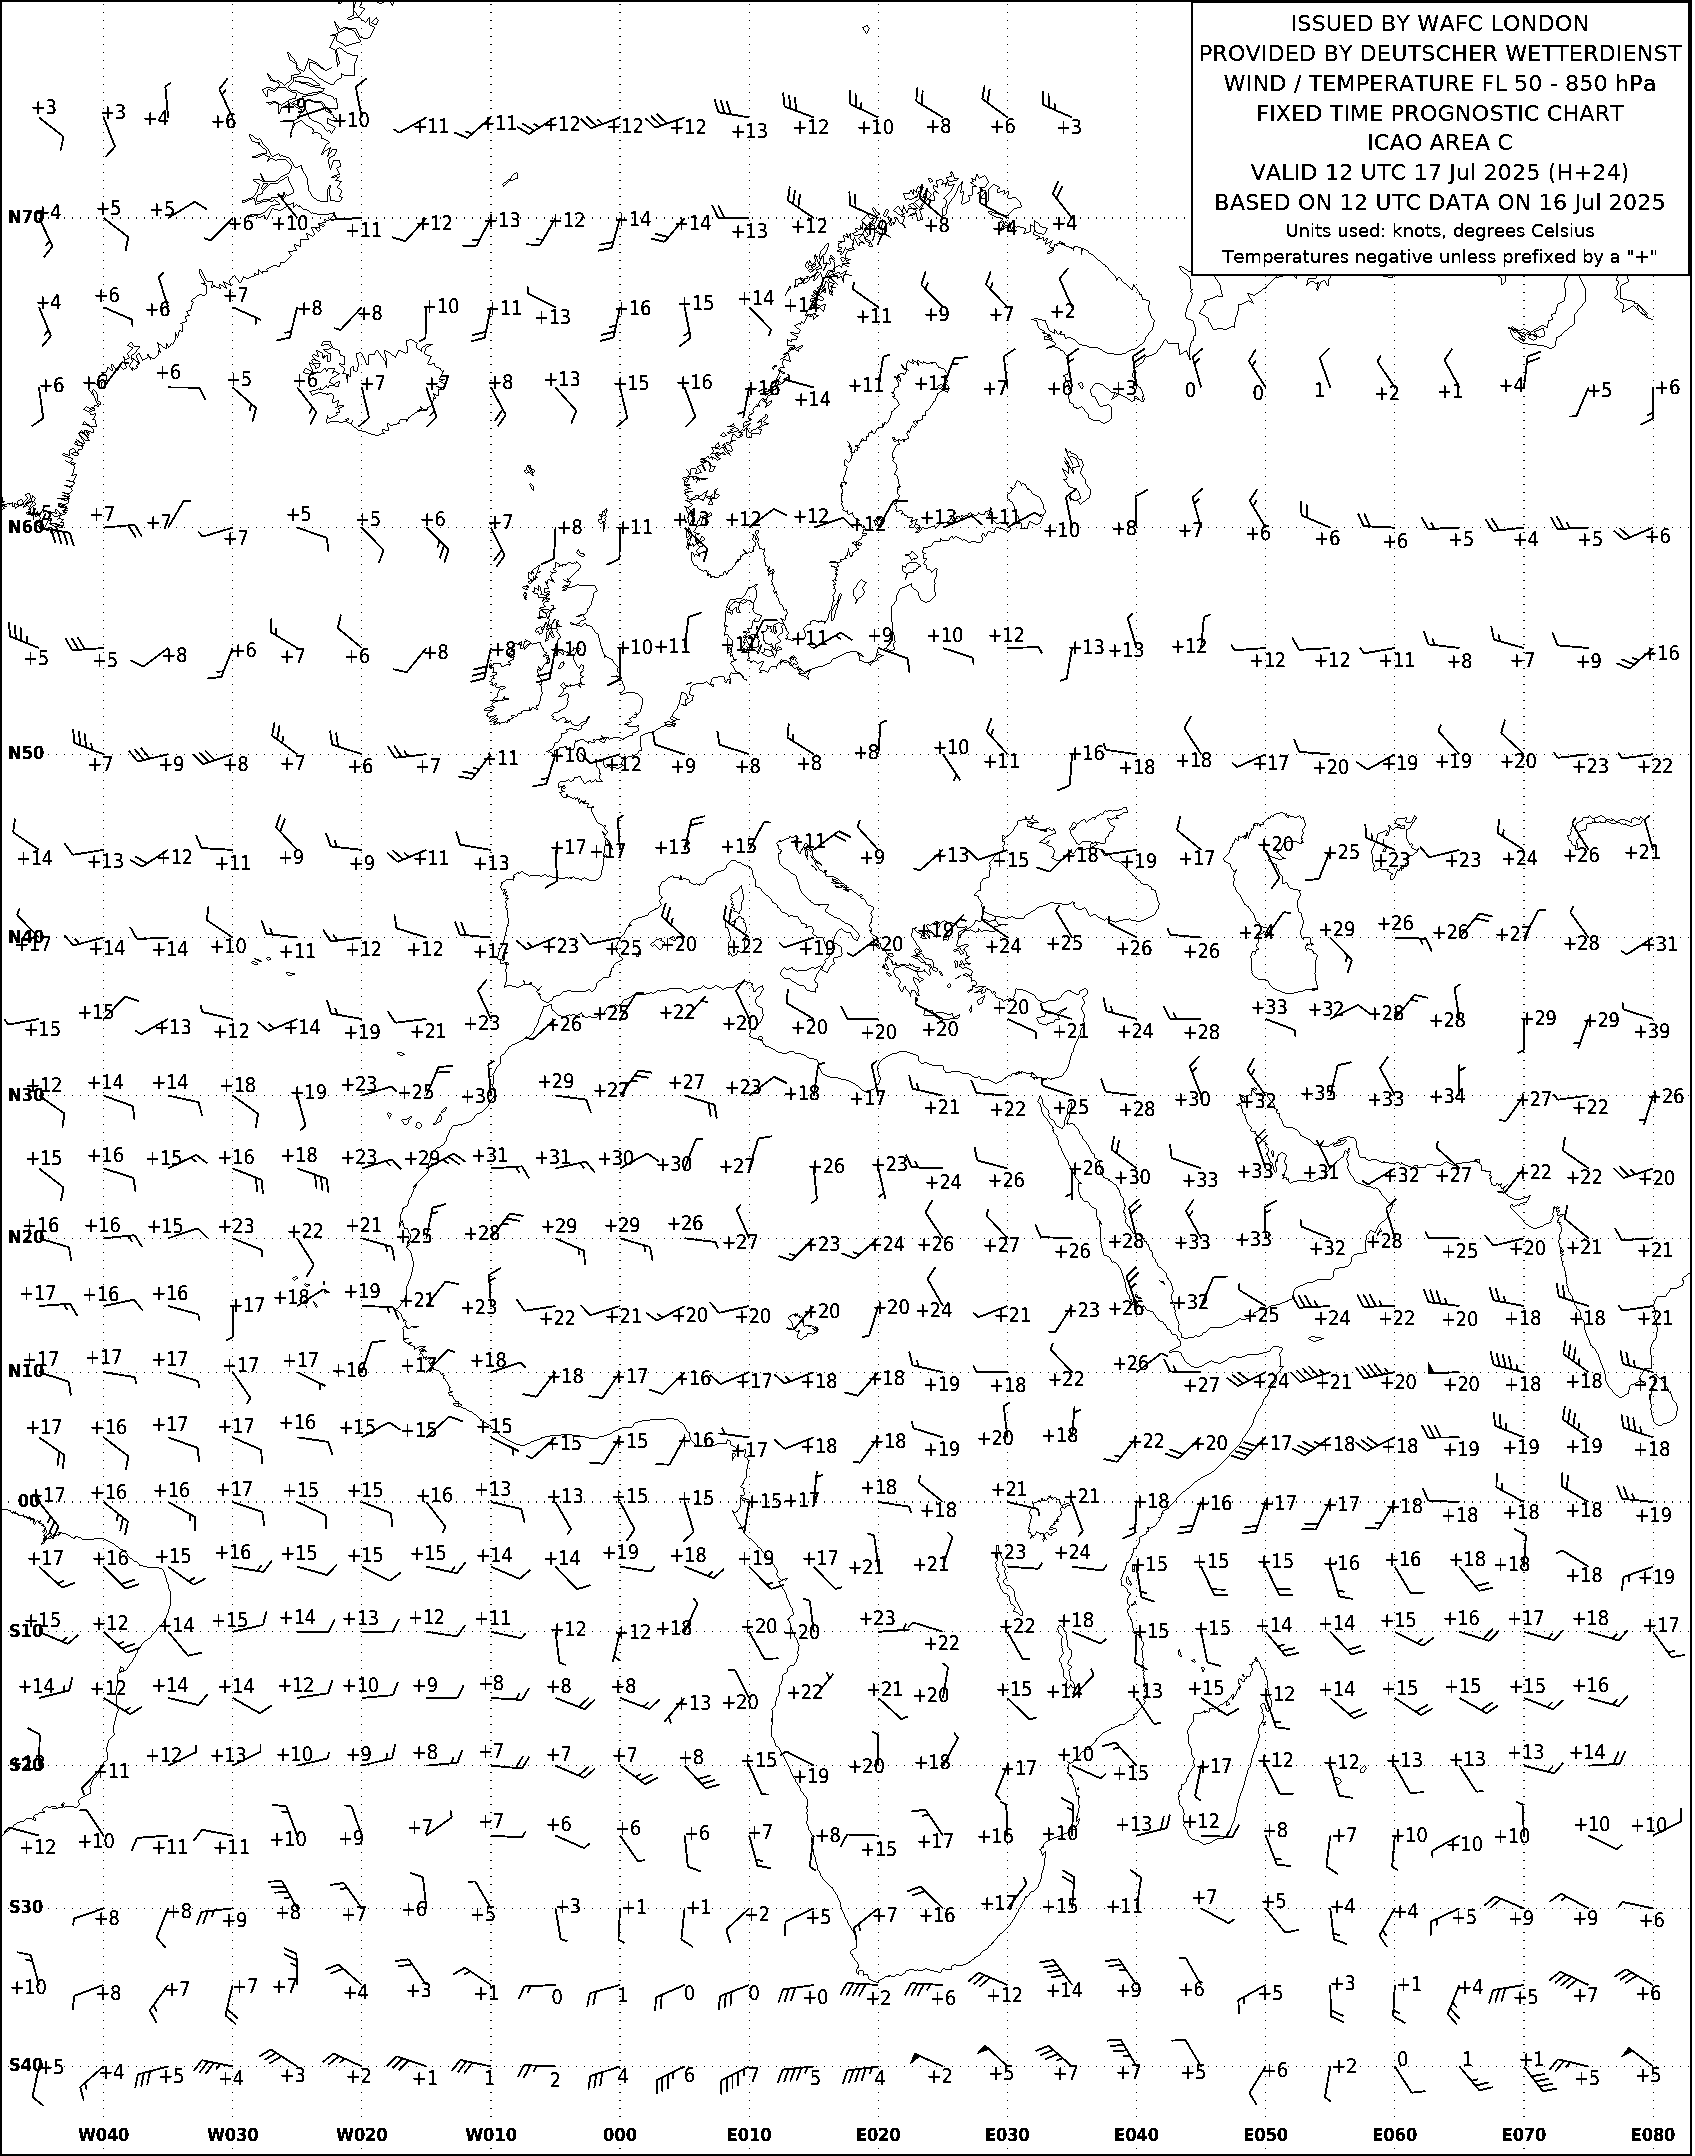 ISSUED BY WAFC LONDON
PROVIDED BY DEUTSCHER WETTERDIENST
WIND / TEMPERATURE FL 50 - 850 hPa
FIXED TIME PROGNOSTIC CHART
ICAO AREA C
VALID 12 UTC 17 Jul 2025 (H+24)
BASED ON 12 UTC DATA ON 16 Jul 2025
Units used: knots, degrees Celsius
Temperatures negative unless prefixed by a "+"
+3 +3 +4 +6 +9 +10 +11 +11 +12 +12 +12 +13 +12 +10 +8 +6 +3
N70 +4 +5 +5 +6 +10 +11 +12 +13 +12 +14 +14 +13 +12 +9 +8 +4 +4
+4 +6 +6 +7 +8 +8 +10 +11 +13 +16 +15 +14 +11 +9 +7 +2
+6 +6 +6 +5 +6 +7 +7 +8 +13 +15 +16 +16 +14 +11 +11 +7 +6 +3 0 0 1 +2 +1 +4 +5 +6
N60 +5 +7 +7 +7 +5 +5 +6 +7 +8 +11 +13 +12 +12 +12 +13 +11 +10 +8 +7 +6 +6 +6 +5 +4 +5 +6
+5 +5 +8 +6 +7 +6 +8 +8 +10 +10 +11 +11 +9 +10 +12 +13 +13 +12 +12 +12 +11 +8 +7 +9 +16
N50 +7 +9 +8 +7 +6 +7 +11 +10 +12 +9 +8 +8 +8 +10 +11 +16 +18 +18 +17 +20 +19 +19 +20 +23 +22
+14 +13 +12 +11 +9 +9 +11 +13 +17 +17 +13 +15 +11 +9 +13 +15 +18 +19 +17 +20 +25 +23 +23 +24 +26 +21
N40 +17 +14 +14 +10 +11 +12 +12 +17 +23 +25 +20 +22 +19 +20 +19 +24 +25 +26 +26 +24 +29 +26 +26 +27 +28 +31
+15 +15 +13 +12 +14 +19 +21 +23 +26 +25 +22 +20 +20 +20 +20 +20 +21 +24 +28 +33 +32 +28 +28 +29 +29 +39
N30 +12 +14 +14 +18 +19 +23 +25 +30 +29 +27 +27 +23 +18 +17 +21 +22 +25 +28 +30 +32 +35 +33 +34 +27 +22 +26
+15 +16 +15 +16 +18 +23 +29 +31 +31 +30 +30 +27 +26 +23 +24 +26 +26 +30 +33 +33 +31 +32 +27 +22 +22 +20
N20 +16 +16 +15 +23 +22 +21 +25 +28 +29 +29 +26 +27 +23 +24 +26 +27 +26 +28 +33 +33 +32 +28 +25 +20 +21 +21
+17 +16 +16 +17 +18 +19 +21 +23 +22 +21 +20 +20 +20 +20 +24 +21 +23 +26 +32 +25 +24 +22 +20 +18 +18 +21
N10 +17 +17 +17 +17 +17 +16 +17 +18 +18 +17 +16 +17 +18 +18 +19 +18 +22 +26 +27 +24 +21 +20 +20 +18 +18 +21
+17 +16 +17 +17 +16 +15 +15 +15 +15 +15 +16 +17 +18 +18 +19 +20 +18 +22 +20 +17 +18 +18 +19 +19 +19 +18
00 +17 +16 +16 +17 +15 +15 +16 +13 +13 +15 +15 +15 +17 +18 +18 +21 +21 +18 +16 +17 +17 +18 +18 +18 +18 +19
+17 +16 +15 +16 +15 +15 +15 +14 +14 +19 +18 +19 +17 +21 +21 +23 +24 +15 +15 +15 +16 +16 +18 +18 +18 +19
S10 +15 +12 +14 +15 +14 +13 +12 +11 +12 +12 +18 +20 +20 +23 +22 +22 +18 +15 +15 +14 +14 +15 +16 +17 +18 +17
+14 +12 +14 +14 +12 +10 +9 +8 +8 +8 +13 +20 +22 +21 +20 +15 +14 +13 +15 +12 +14 +15 +15 +15 +16
S20 +11 +12 +13 +10 +9 +8 +7 +7 +7 +8 +15 +19 +20 +18 +17 +10 +15 +17 +12 +12 +13 +13 +13 +14
+12 +10 +11 +11 +10 +9 +7 +7 +6 +6 +6 +7 +8 +15 +17 +16 +10 +13 +12 +8 +7 +10 +10 +10 +10 +10
S30 +8 +8 +9 +8 +7 +6 +5 +3 +1 +1 +2 +5 +7 +16 +17 +15 +11 +7 +5 +4 +4 +5 +9 +9 +6
+10 +8 +7 +7 +7 +4 +3 +1 0 1 0 0 +0 +2 +6 +12 +14 +9 +6 +5 +3 +1 +4 +5 +7 +6
S40 +5 +4 +5 +4 +3 +2 +1 1 2 4 6 7 5 4 +2 +5 +7 +7 +5 +6 +2 0 1 +1 +5 +5
W040 W030 W020 W010 000 E010 E020 E030 E040 E050 E060 E070 E080